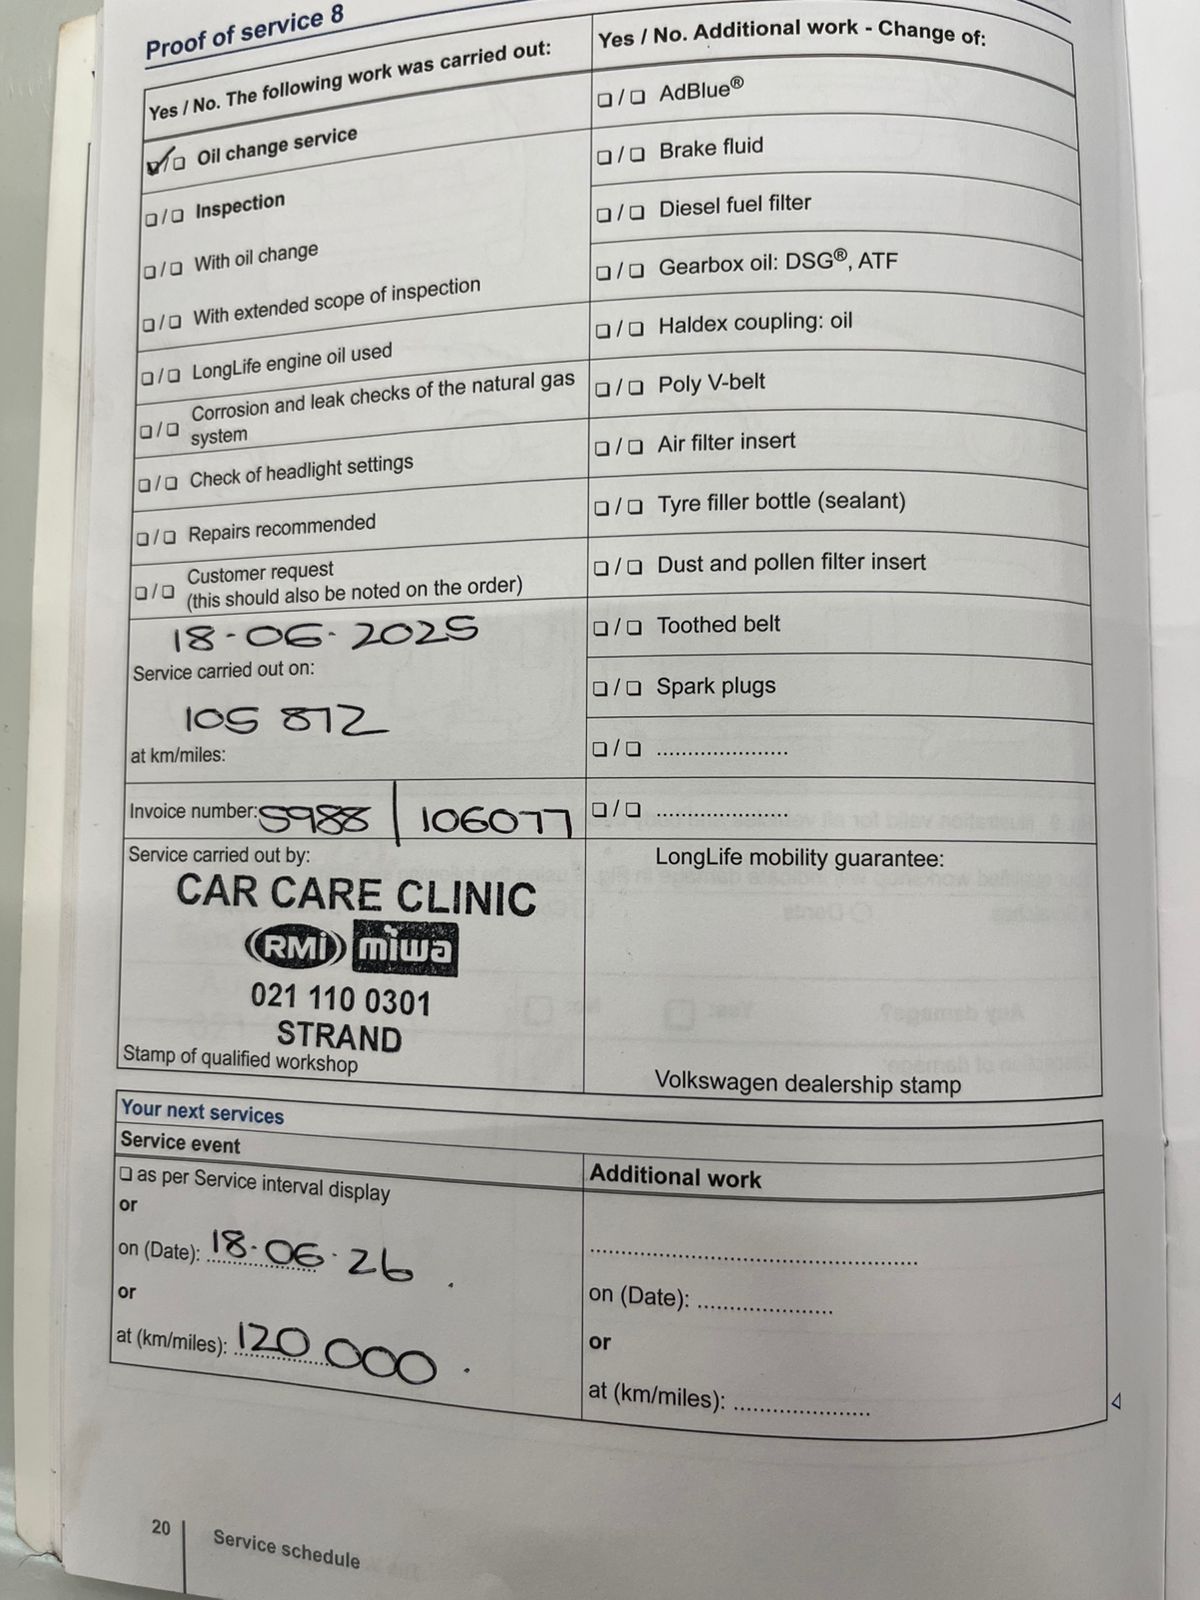 Proof of service 8
Yes / No. The following work was carried out:
☑/❏ Oil change service
❏/❏ Inspection
❏/❏ With oil change
❏/❏ With extended scope of inspection
❏/❏ LongLife engine oil used
❏/❏ Corrosion and leak checks of the natural gas
system
❏/❏ Check of headlight settings
❏/❏ Repairs recommended
❏/❏ Customer request
(this should also be noted on the order)
18-06-2025
Service carried out on:
105 872
at km/miles:
Invoice number: 5988 | 106077
Service carried out by:
CAR CARE CLINIC
RMi miwa
021 110 0301
STRAND
Stamp of qualified workshop
Yes / No. Additional work - Change of:
❏/❏ AdBlue®
❏/❏ Brake fluid
❏/❏ Diesel fuel filter
❏/❏ Gearbox oil: DSG®, ATF
❏/❏ Haldex coupling: oil
❏/❏ Poly V-belt
❏/❏ Air filter insert
❏/❏ Tyre filler bottle (sealant)
❏/❏ Dust and pollen filter insert
❏/❏ Toothed belt
❏/❏ Spark plugs
❏/❏ ......................
❏/❏ ......................
LongLife mobility guarantee:
Volkswagen dealership stamp
Your next services
Service event
❏ as per Service interval display
or
on (Date): 18-06-26.
or
at (km/miles): 120 000.
Additional work
......................................................
on (Date): ......................
or
at (km/miles): ......................
20
Service schedule